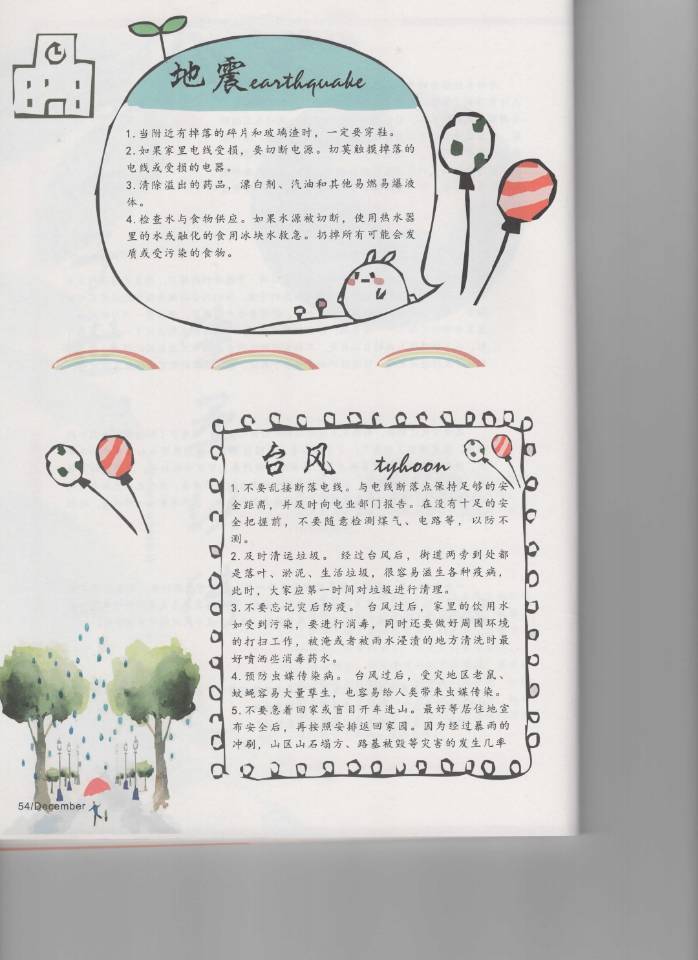 地震earthquake
1.当附近有掉落的碎片和玻璃渣时，一定要穿鞋。
2.如果家里电线受损，要切断电源。切莫触摸掉落的
电线或受损的电器。
3.清除溢出的药品，漂白剂、汽油和其他易燃易爆液
体。
4.检查水与食物供应。如果水源被切断，使用热水器
里的水或融化的食用冰块水救急。扔掉所有可能会发
质或受污染的食物。
台风 tyhoon
1.不要乱接断落电线。与电线断落点保持足够的安
全距离，并及时向电业部门报告。在没有十足的安
全把握前，不要随意检测煤气、电路等，以防不
测。
2.及时清运垃圾。 经过台风后，街道两旁到处都
是落叶、淤泥、生活垃圾，很容易滋生各种疫病，
此时，大家应第一时间对垃圾进行清理。
3.不要忘记灾后防疫。 台风过后，家里的饮用水
如受到污染，要进行消毒，同时还要做好周围环境
的打扫工作，被淹或者被雨水浸渍的地方清洗时最
好喷洒些消毒药水。
4.预防虫媒传染病。 台风过后，受灾地区老鼠、
蚊蝇容易大量孳生，也容易给人类带来虫媒传染。
5.不要急着回家或盲目开车进山。最好等居住地宣
布安全后，再按照安排返回家园。因为经过暴雨的
冲刷，山区山石塌方、路基被毁等灾害的发生几率
54/December